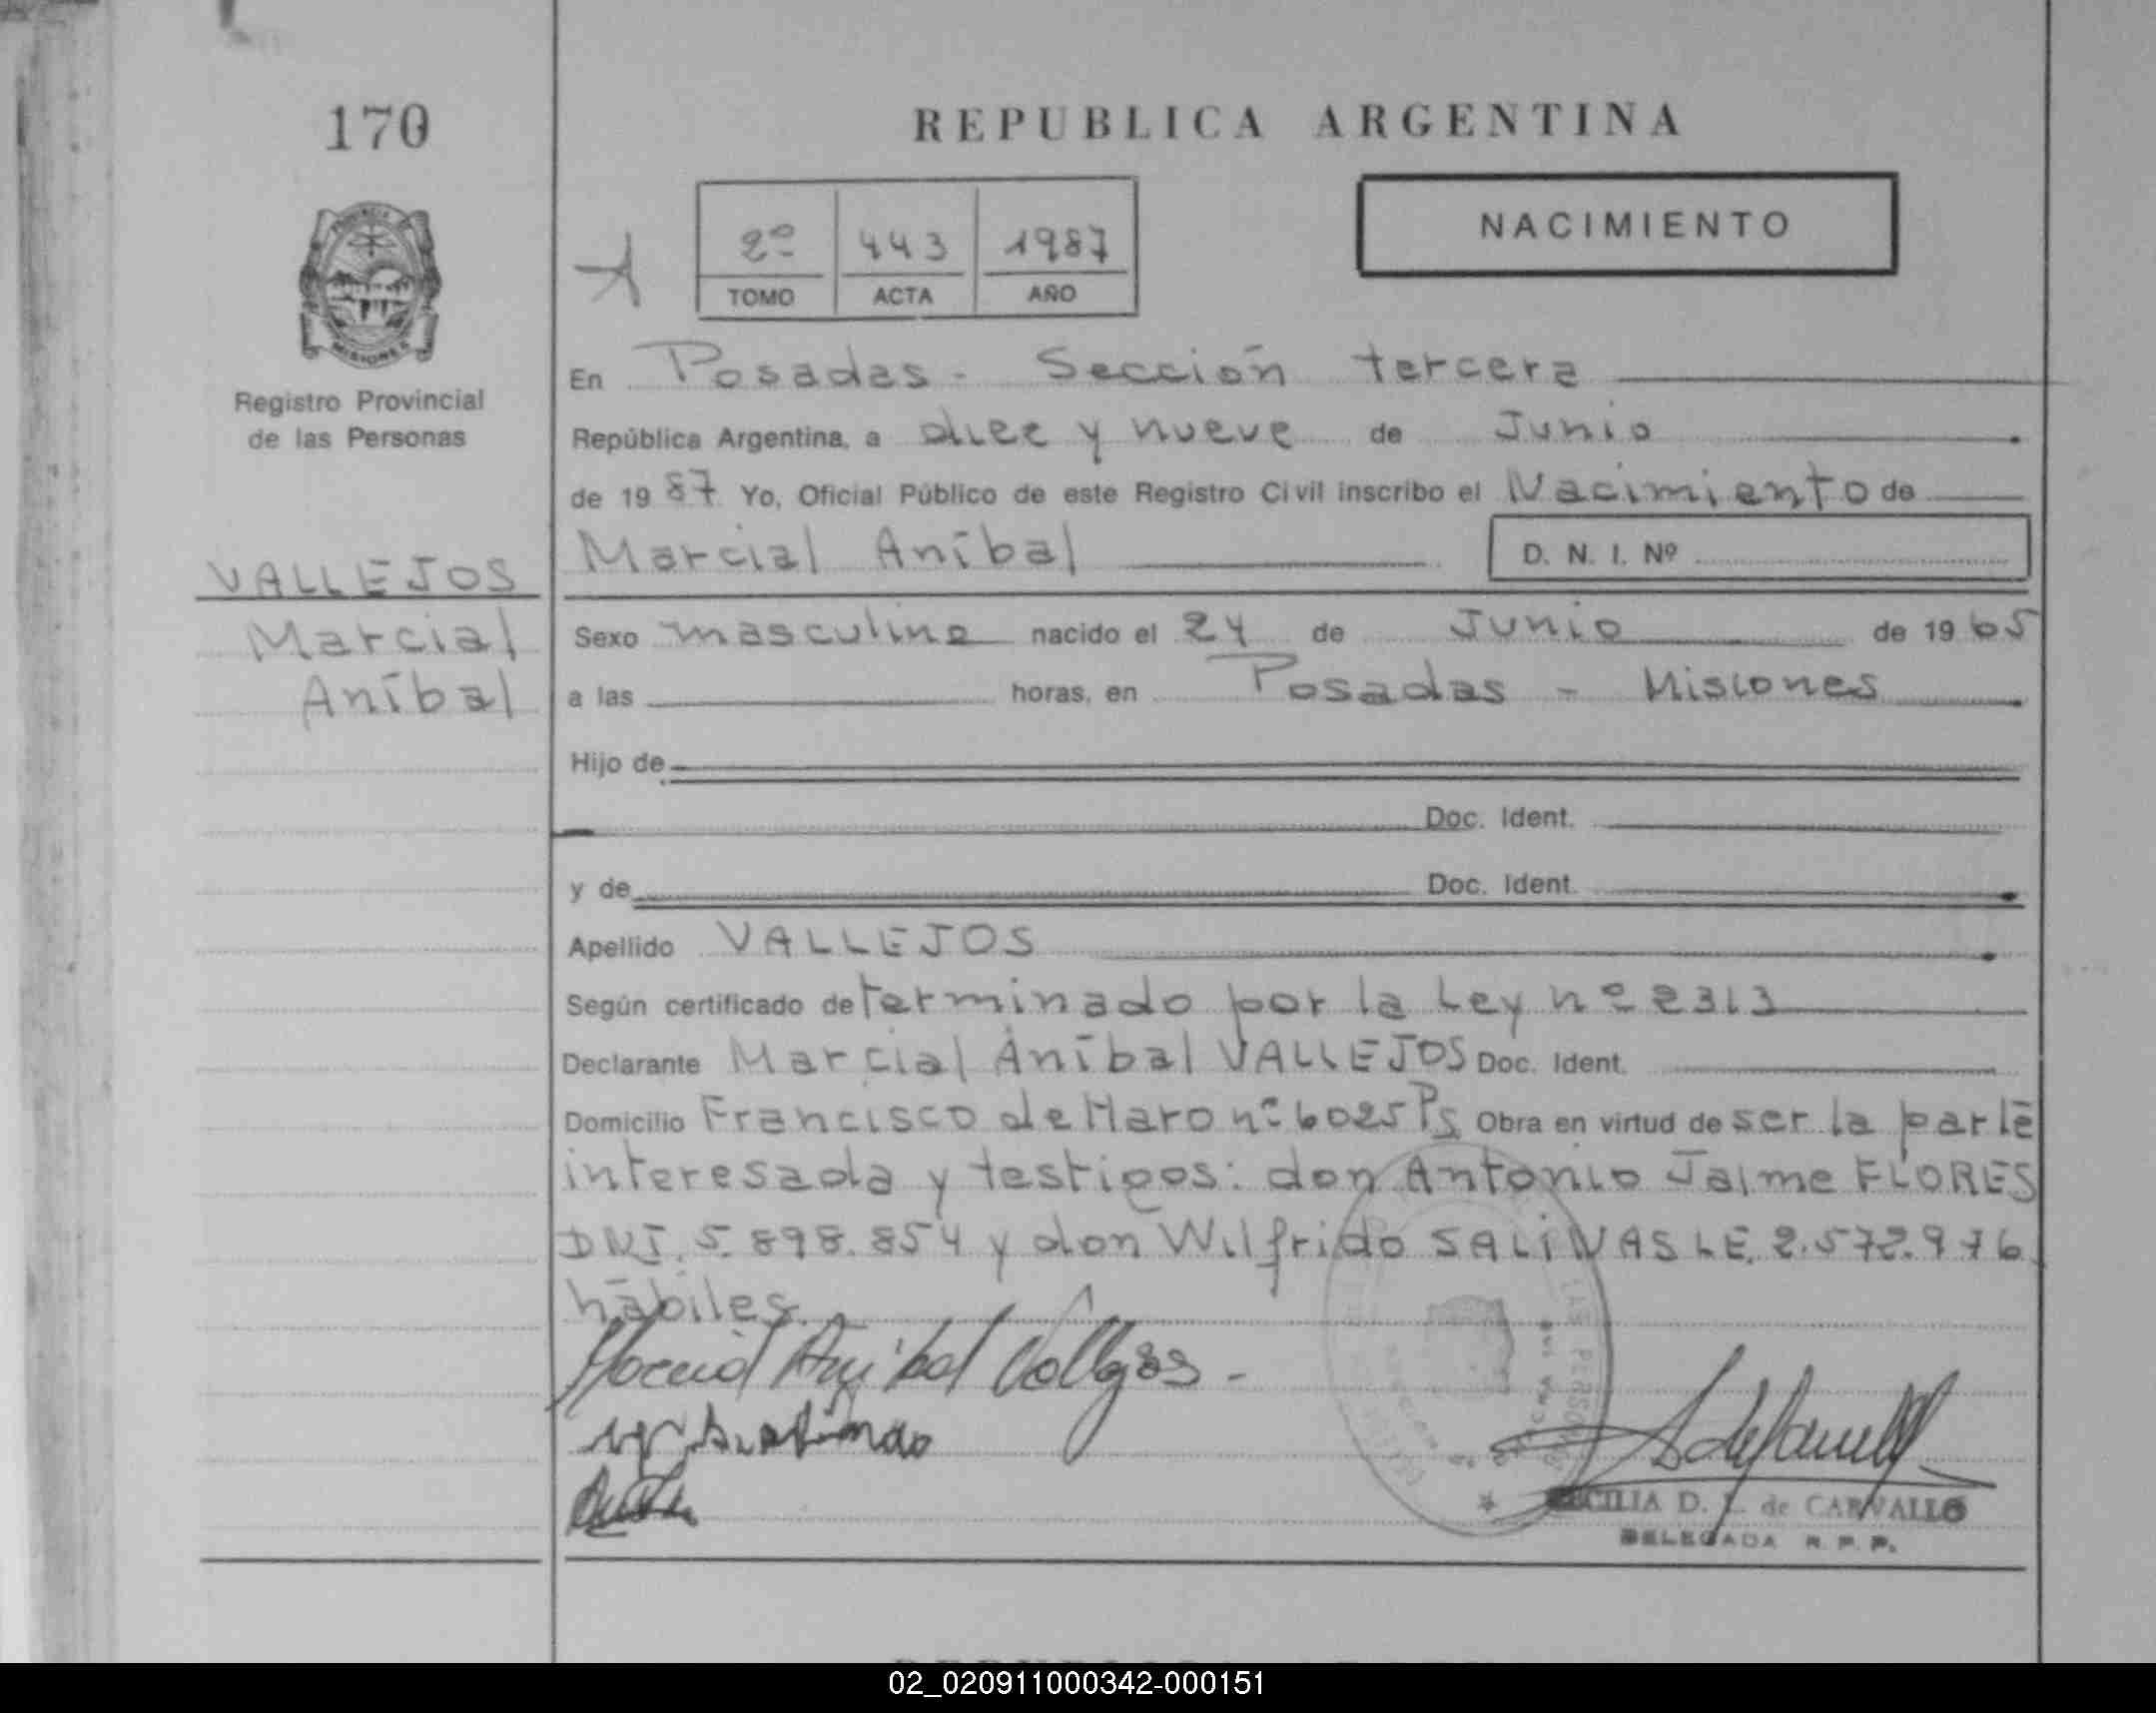 170
REPUBLICA ARGENTINA
NACIMIENTO
2º 443 1987
TOMO ACTA AÑO
PROVINCIA
MISIONES
Registro Provincial
de las Personas
En Posadas - Sección tercera
República Argentina, a diez y nueve de Junio
de 1987 Yo, Oficial Público de este Registro Civil inscribo el Nacimiento de
Marcial Aníbal D. N. I. Nº
VALLEJOS
Marcial
Aníbal
Sexo masculino nacido el 24 de Junio de 1965
a las horas, en Posadas - Misiones
Hijo de
Doc. Ident.
y de Doc. Ident.
Apellido VALLEJOS
Según certificado determinado por la Ley nº 2313
Declarante Marcial Aníbal VALLEJOS Doc. Ident.
Domicilio Francisco de Haro nº 6025 Ps Obra en virtud de ser la parte
interesada y testigos: don Antonio Jaime FLORES
DNI. 5.898.854 y don Wilfrido SALINAS LE. 2.572.976
hábiles.
Marcial Anibal Vallejos -
CECILIA D. L. de CARVALLO
DELEGADA R. P. P.
02_020911000342-000151